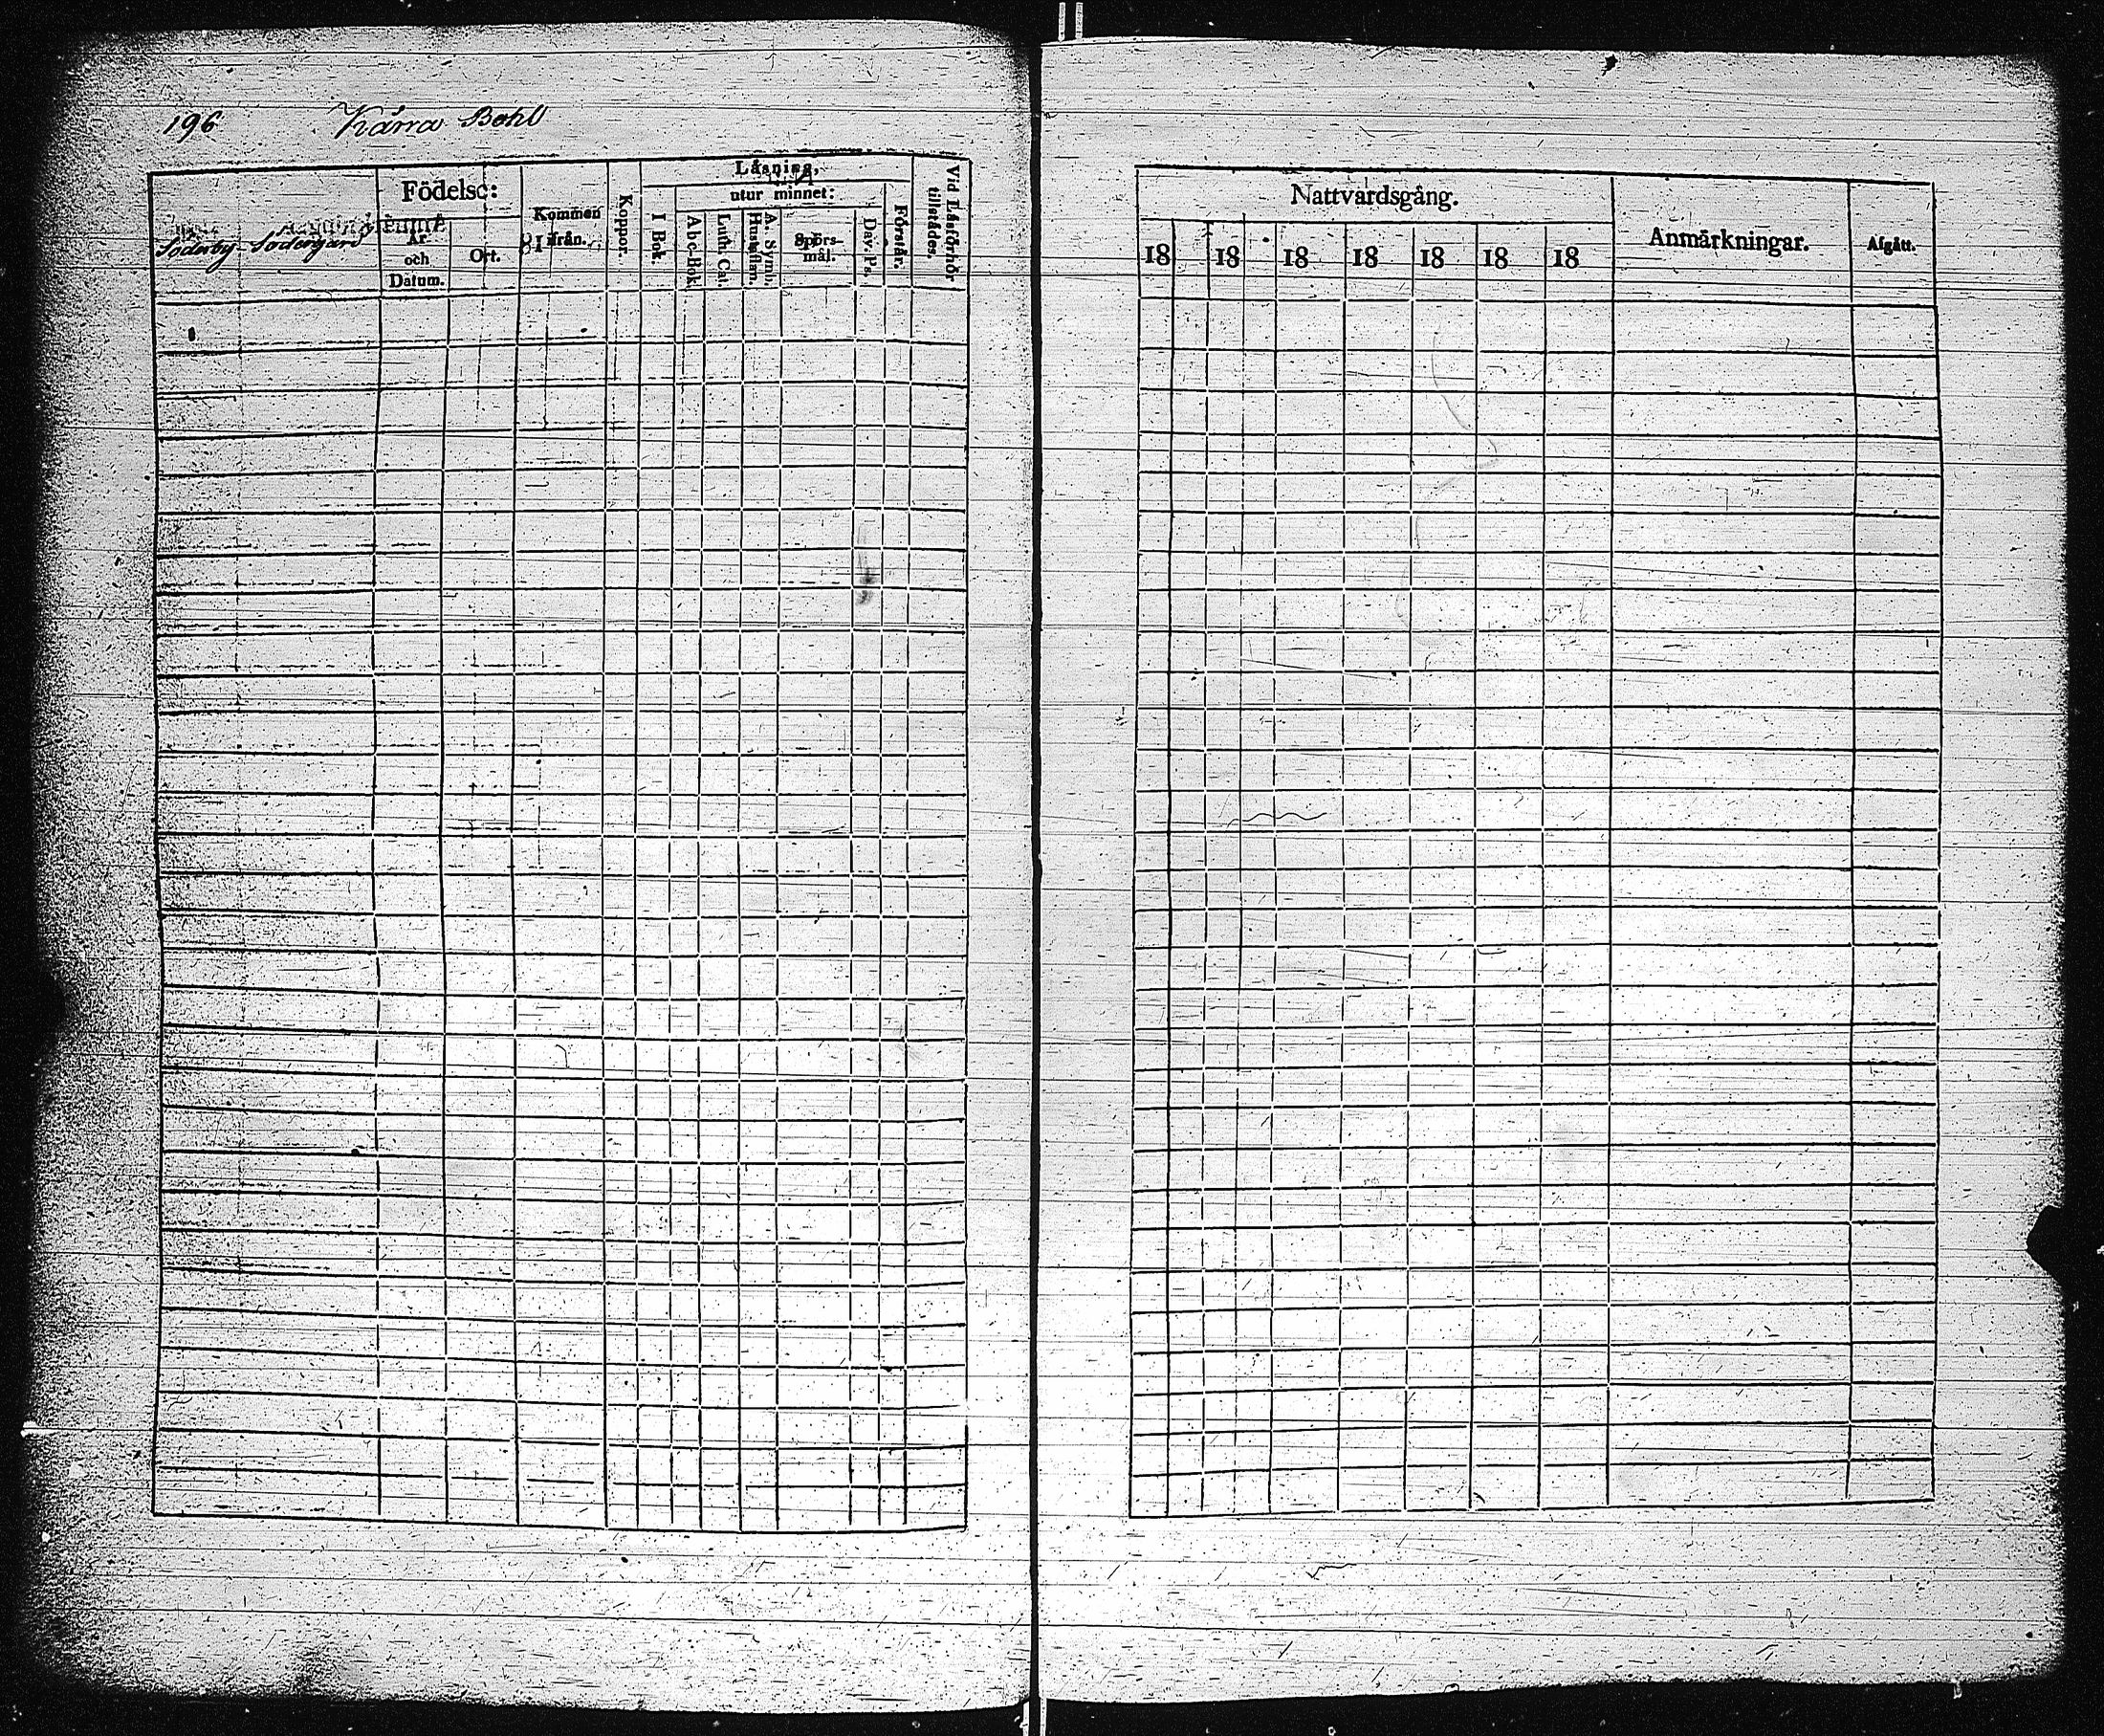 196 Kärra Bohl
Söderby Södergård
Födelse:
År och Datum.
Ort.
Kommen ifrån.
Koppor.
Läsning,
utur minnet:
I Bok.
Ab c-Bok.
Luth. Cat.
Hustaflan.
A. Symb.
Spörsmål.
Dav. Ps.
Förstår.
Vid Läsförhör tillstädes.
Nattvardsgång.
18 18 18 18 18 18 18
Anmärkningar.
Afgått.